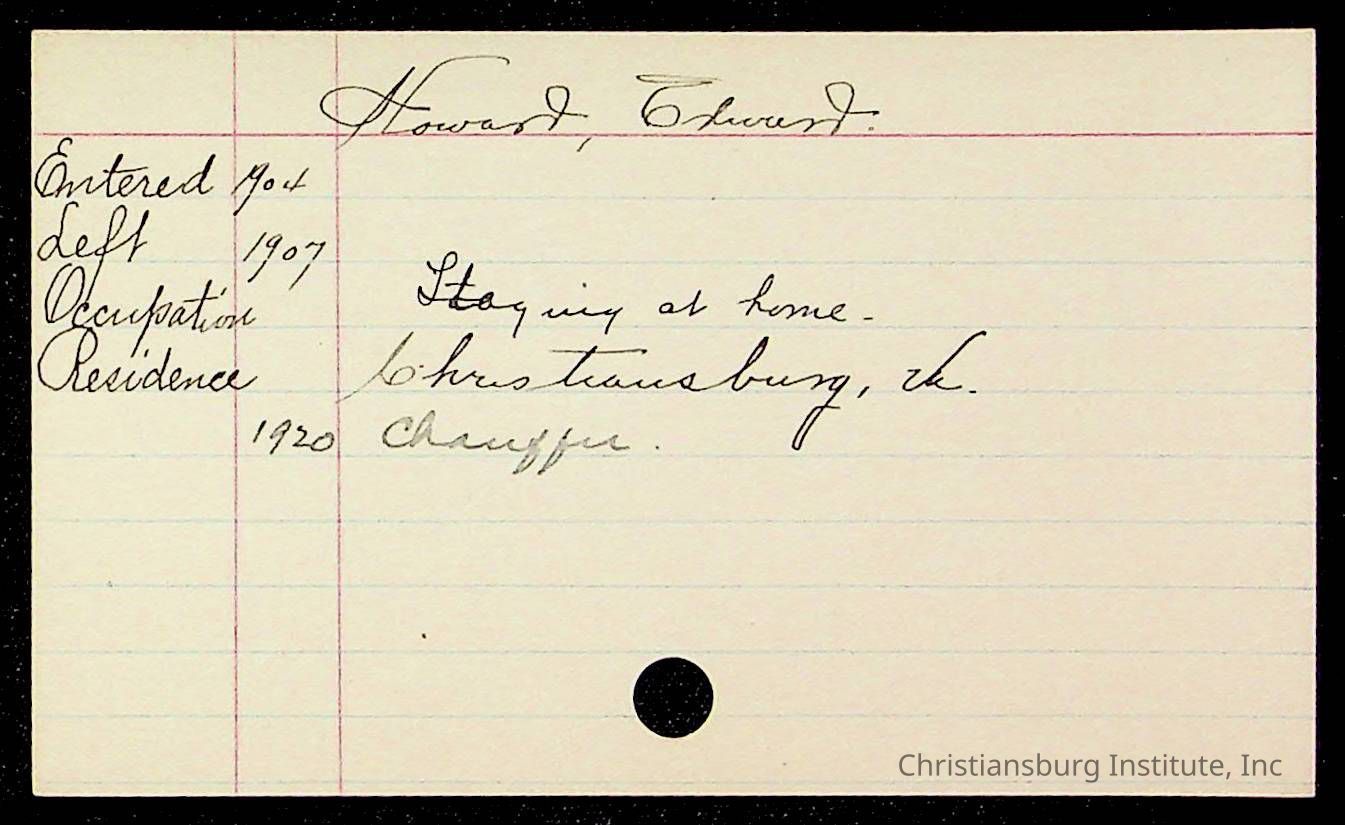 Howard, Edward.
Entered 1904
Left 1907
Occupation Staying at home -
Residence Christiansburg, Va.
1920 Chauffer.
Christiansburg Institute, Inc